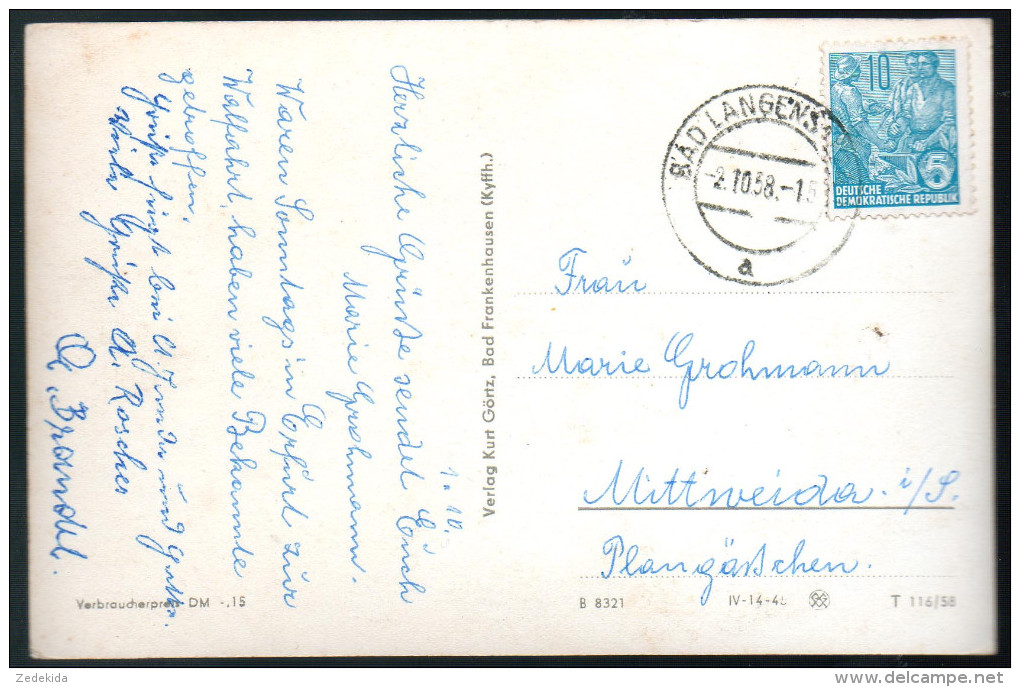 Herzliche Grüße sendet Euch
Marie Grohmann.
1.10.
Waren Sonntags in Erfurt zur
Walfahrt, haben viele Bekannte
getroffen.
Grüße
Viele Grüße A. Roscher
Brandl.
Verbraucherpreis DM -.15
Verlag Kurt Görtz, Bad Frankenhausen (Kyffh.)
BAD LANGENS
-2.10.58.-15
a
10
5
DEUTSCHE
DEMOKRATISCHE REPUBLIK
Frau
Marie Grohmann
Mittweida i/S.
Plangäßchen.
B 8321
IV-14-48
T 116/58
Zedekida
delcampe.net